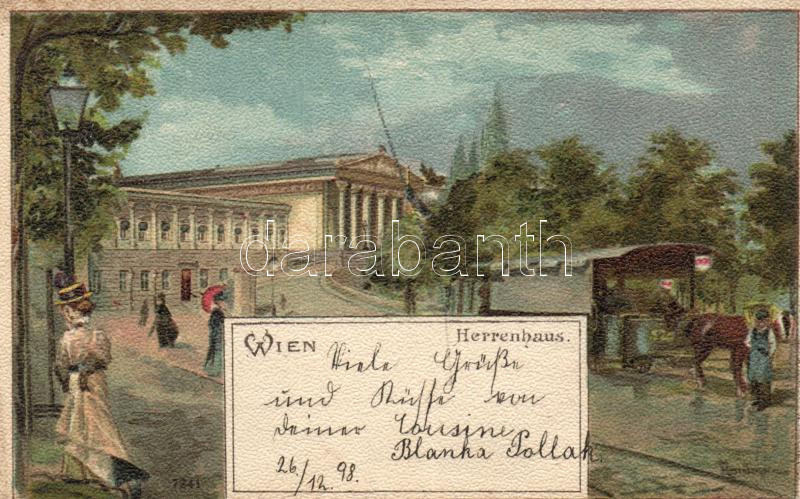 WIEN Herrenhaus.
Viele Grüße
und Küsse von
deiner Cousine
Blanka Pollak.
26/12. 98.
7241
darabanth